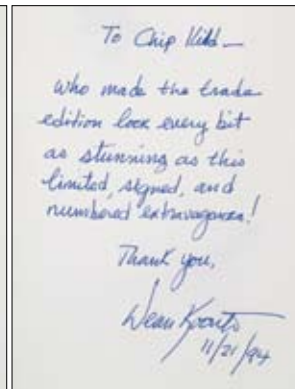 To Chip Kidd —
who made the trade
edition look every bit
as stunning as this
limited, signed, and
numbered extravaganza!
Thank you,
Dean Koontz
11/21/94